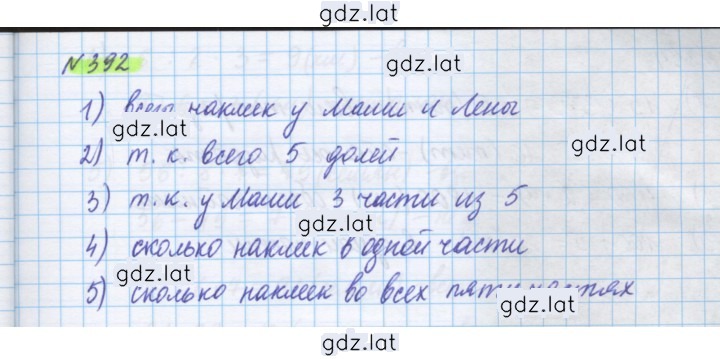 gdz.lat
№392
gdz.lat
1) всего наклеек у Маши и Лены
gdz.lat
gdz.lat
2) т.к. всего 5 долей
3) т.к. у Маши 3 части из 5
gdz.lat
4) сколько наклеек в одной части
gdz.lat
5) сколько наклеек во всех пяти частях
gdz.lat
gdz.lat